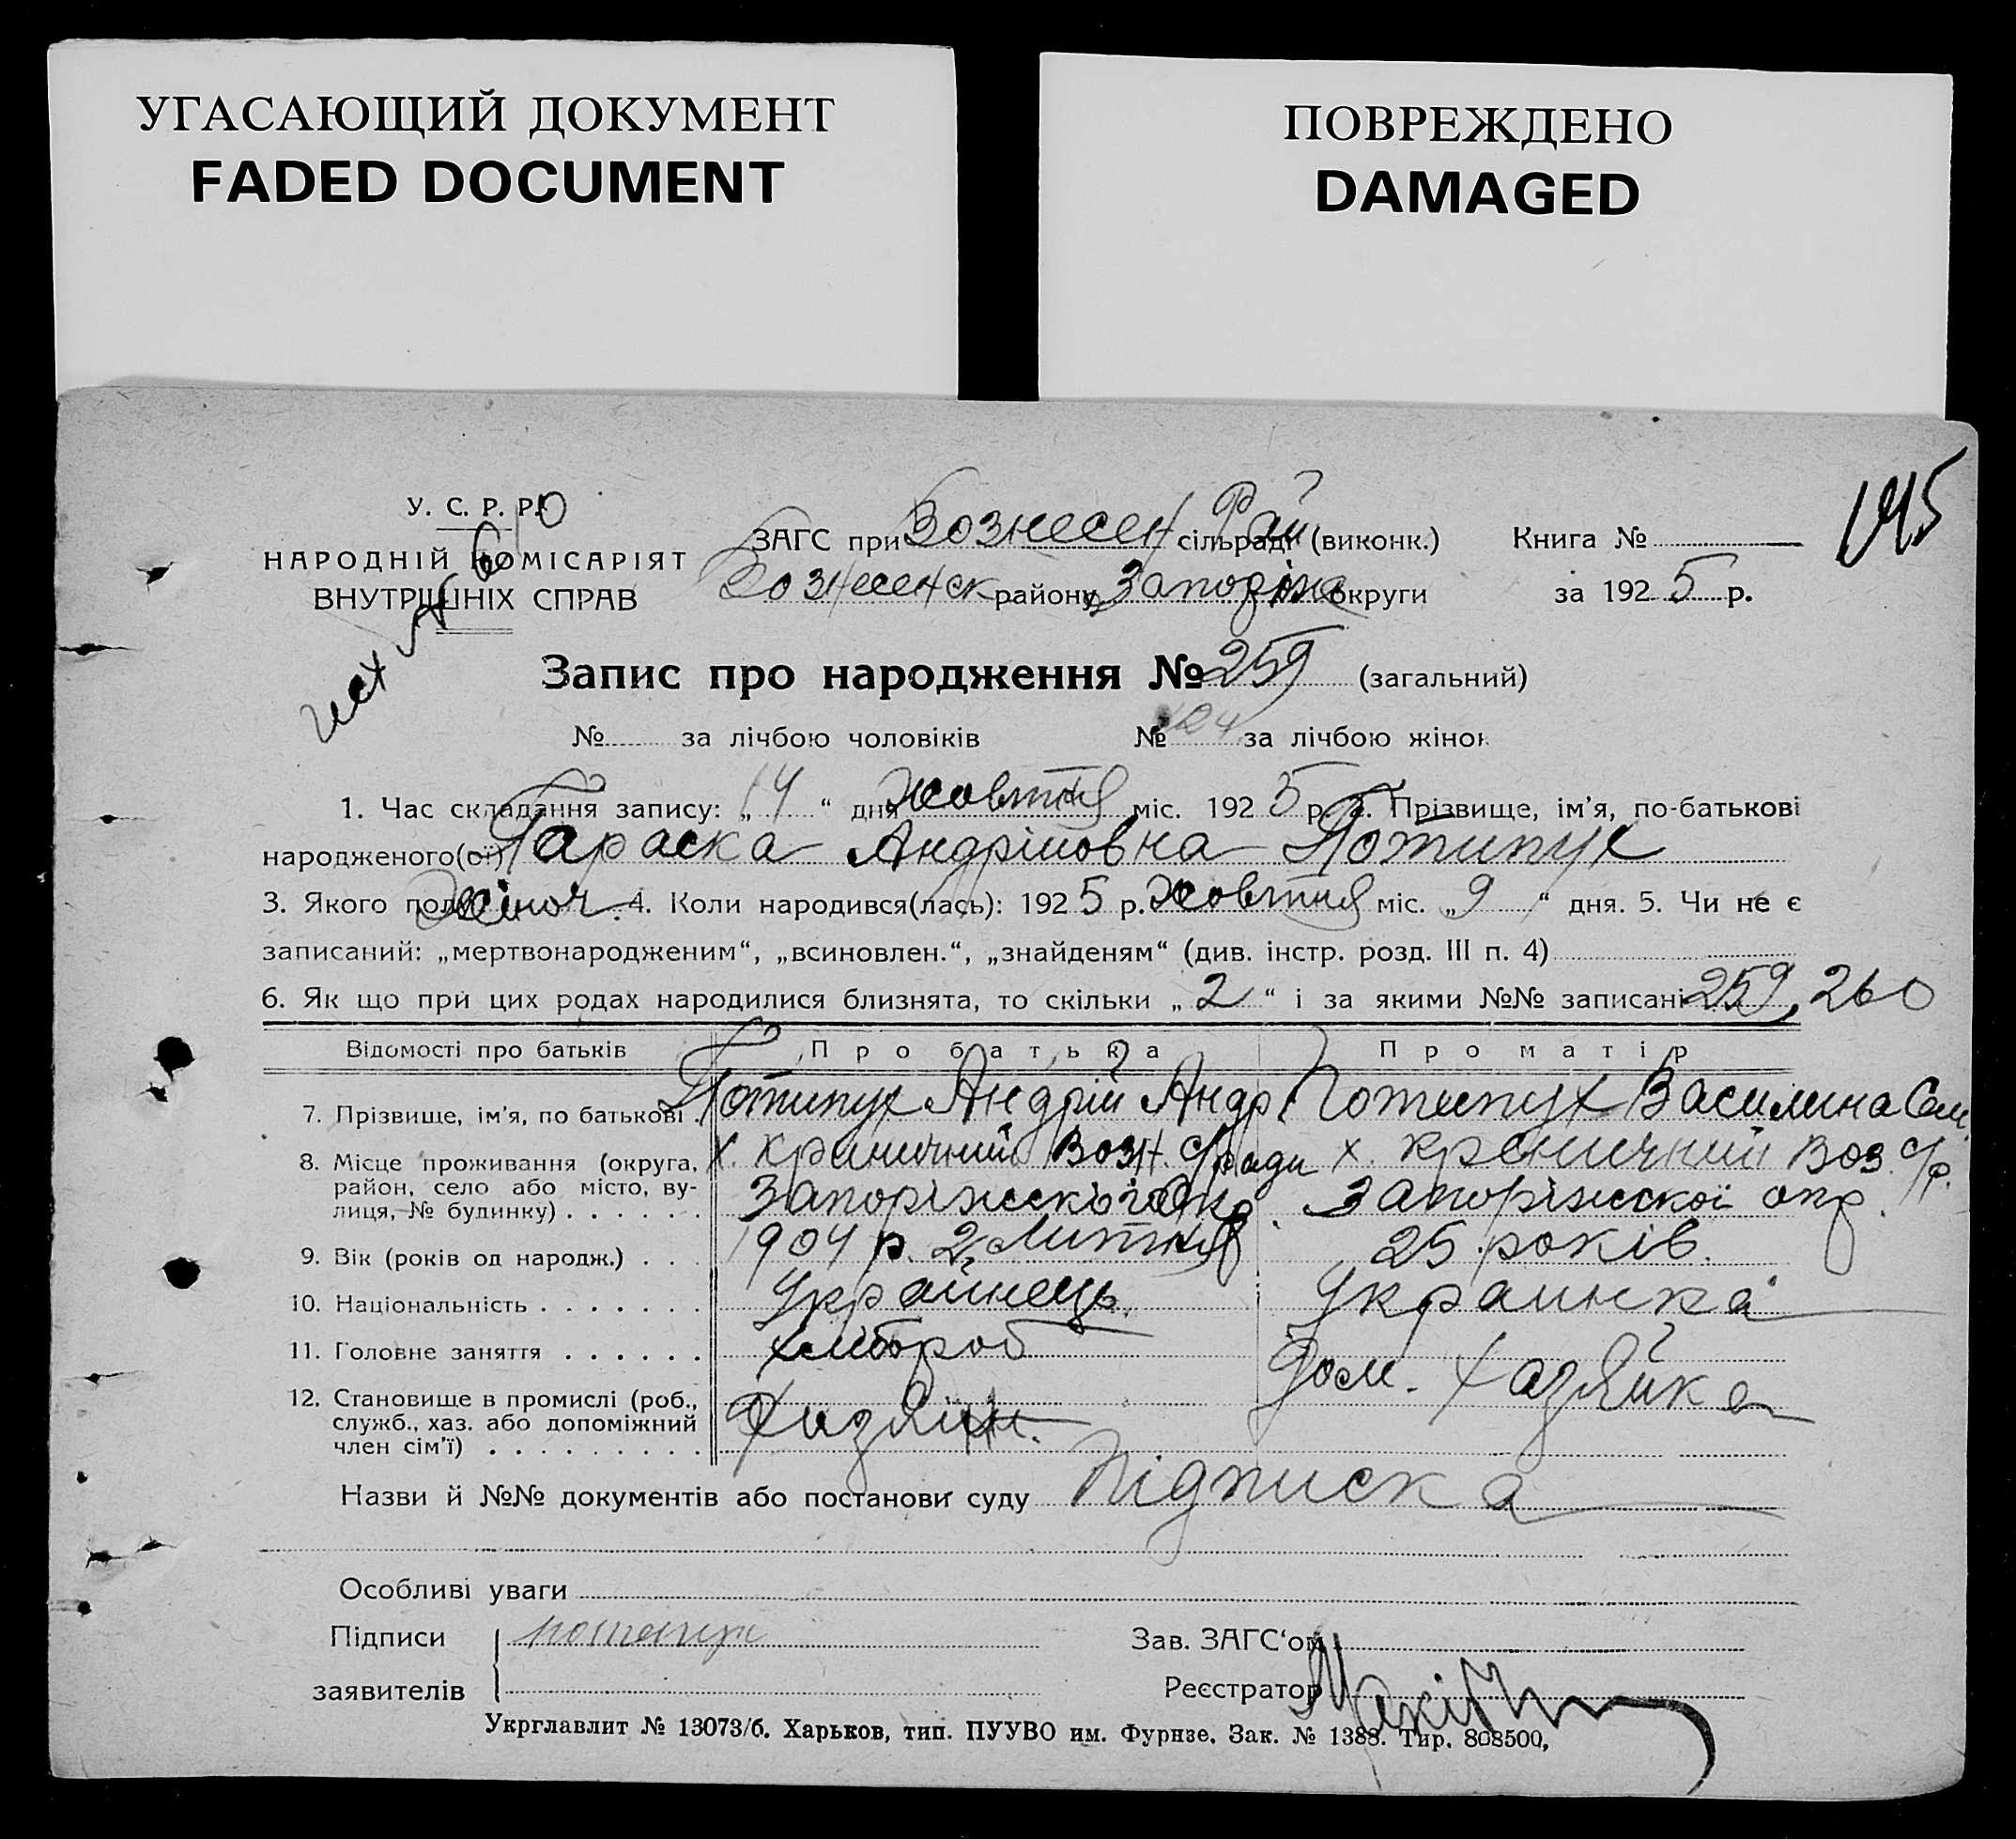 УГАСАЮЩИЙ ДОКУМЕНТ
FADED DOCUMENT
ПОВРЕЖДЕНО
DAMAGED
У. С. Р. Р.
НАРОДНІЙ КОМІСАРІЯТ
ВНУТРІШНІХ СПРАВ
ЗАГС при Вознесен сільраді (виконк.)
Вознесенск району, Запоріж округи
Книга №
за 1925 р.
Запис про народження № 259 (загальний)
№ за лічбою чоловіків № 124 за лічбою жінок
1. Час складання запису: „14“ дня Жовтня міс. 1925 р. 2. Прізвище, ім’я, по-батькові
народженого(ої) Параска Андріиовна Потипух
3. Якого полу Жіноч. 4. Коли народився(лась): 1925 р. Жовтня міс. „9“ дня. 5. Чи не є
записаний: „мертвонародженим“, „всиновлен.“, „знайденям“ (див. інстр. розд. III п. 4)
6. Як що при цих родах народилися близнята, то скільки „2“ і за якими №№ записані 259, 260
Відомості про батьків Про батька Про матір
7. Прізвище, ім’я, по батькові . Потипух Андрій Андр. Потипух Василина Сем.
8. Місце проживання (округа, х. краничний Возн. с/ради х. креничний Воз. с/р.
район, село або місто, ву-
лиця, № будинку) . . . . . . Запоріжскої окр. Запоріжскої окр.
9. Вік (років од народж.) . . . 1904 р. 2 Лютня 25 років.
10. Національність . . . . . . . Украинець. Украинка
11. Головне заняття . . . . . . хлібороб Дом. хазяйка
12. Становище в промислі (роб.,
служб., хаз. або допоміжний Хазяин.
член сім’ї) . . . . . . . . .
Назви й №№ документів або постанови суду Підписка
Особливі уваги
Підписи потипух Зав. ЗАГС‘ом
заявителів Реєстратор
Укрглавлит № 13073/б. Харьков, тип. ПУУВО им. Фурнзе. Зак. № 1388. Тир. 808500,